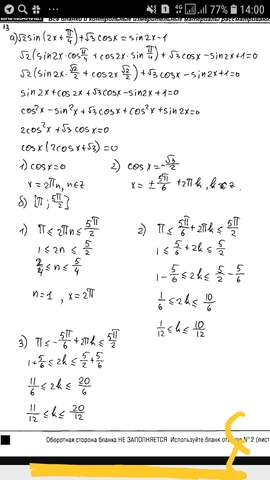 77% 14:00
Все бланки и контрольные измерительные материалы рассматриваются
13
а) √2 sin(2x + π/4) + √3 cosx = sin2x - 1
√2 (sin2x · cos π/4 + cos2x · sin π/4) + √3 cosx - sin2x + 1 = 0
√2 (sin2x · √2/2 + cos2x √2/2) + √3 cosx - sin2x + 1 = 0
sin2x + cos2x + √3 cosx - sin2x + 1 = 0
cos²x - sin²x + √3 cosx + cos²x + sin²x = 0
2cos²x + √3 cosx = 0
cosx (2cosx + √3) = 0
1) cosx = 0
x = 2πn, n∈z
2) cosx = -√3/2
x = ± 5π/6 + 2πk, k∈z.
б) [π; 5π/2]
1) π ≤ 2πn ≤ 5π/2
1 ≤ 2n ≤ 5/2
≤ n ≤ 5/4
n = 1, x = 2π
2) π ≤ 5π/6 + 2πk ≤ 5π/2
1 ≤ 5/6 + 2k ≤ 5/2
1 - 5/6 ≤ 2k ≤ 5/2 - 5/6
1/6 ≤ 2k ≤ 10/6
1/12 ≤ k ≤ 10/12
3) π ≤ -5π/6 + 2πk ≤ 5π/2
1 + 5/6 ≤ 2k ≤ 5/2 + 5/6
11/6 ≤ 2k ≤ 20/6
11/12 ≤ k ≤ 20/12
Оборотная сторона бланка НЕ ЗАПОЛНЯЕТСЯ Используйте бланк ответов № 2 (лист